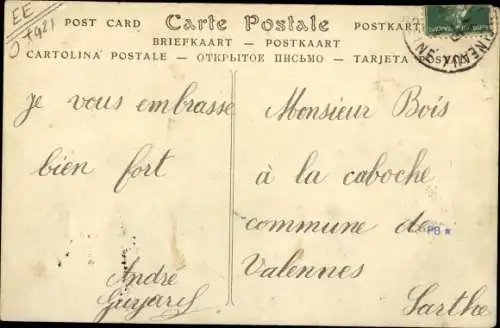 EE
POST CARD Carte Postale POSTKARTE
BRIEFKAART — POSTKAART
CARTOLINA POSTALE — ОТКРЫТОЕ ПИСЬМО — TARJETA POSTAL
Je vous embrasse
bien fort
André
Guyard
Monsieur Bois
à la caboche
commune de
PB *
Valennes
Sarthe